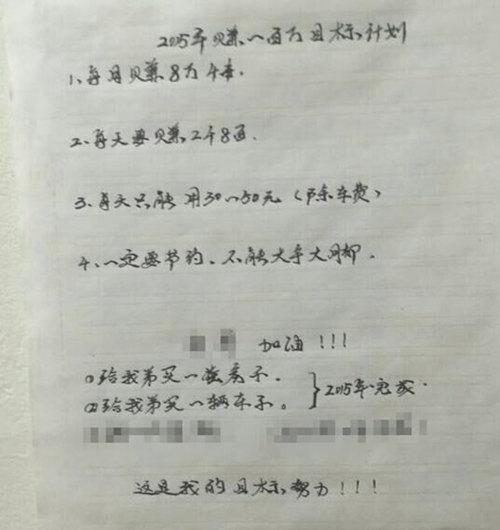 2015年赚一百万目标计划
1、每月赚8万4本.
2、每天要赚2千8百.
3、每天只能用30一50元（除车费）
4、一定要节约、不能大手大脚.
加油！！！
①给我弟买一套房子.
②给我弟买一辆车子。 } 2015年完成.
这是我的目标努力！！！